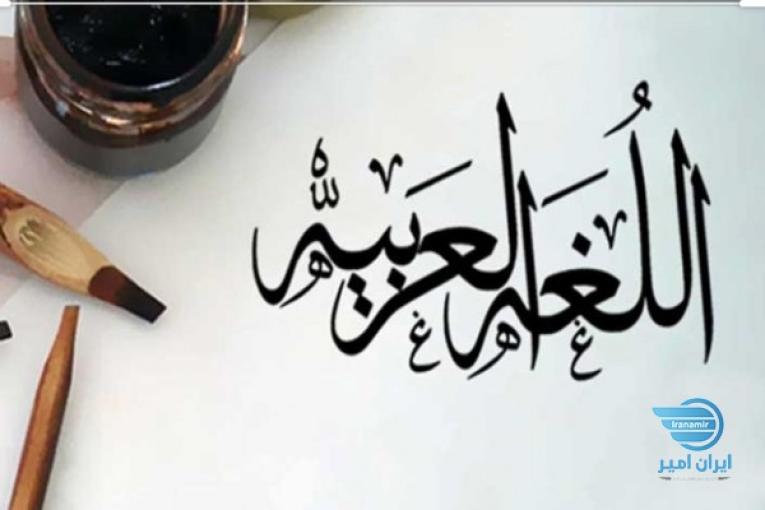 اللُغَه العَربيّه
Iranamir
ایران امیر